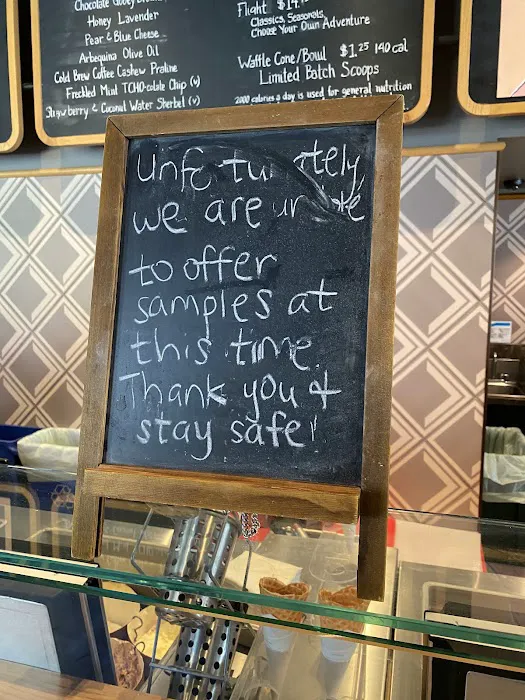 Honey Lavender
Pear & Blue Cheese
Arbequina Olive Oil
Cold Brew Coffee Cashew Praline
Freckled Mint TCHO-colate Chip (v)
Strawberry & Coconut Water Sherbet (v)
Flight
Classics, Seasonals,
Choose Your Own Adventure
Waffle Cone/Bowl $1.25 140 cal
Limited Batch Scoops
2000 calories a day is used for general nutrition
we are
to offer
samples at
this time.
Thank you &
stay safe!